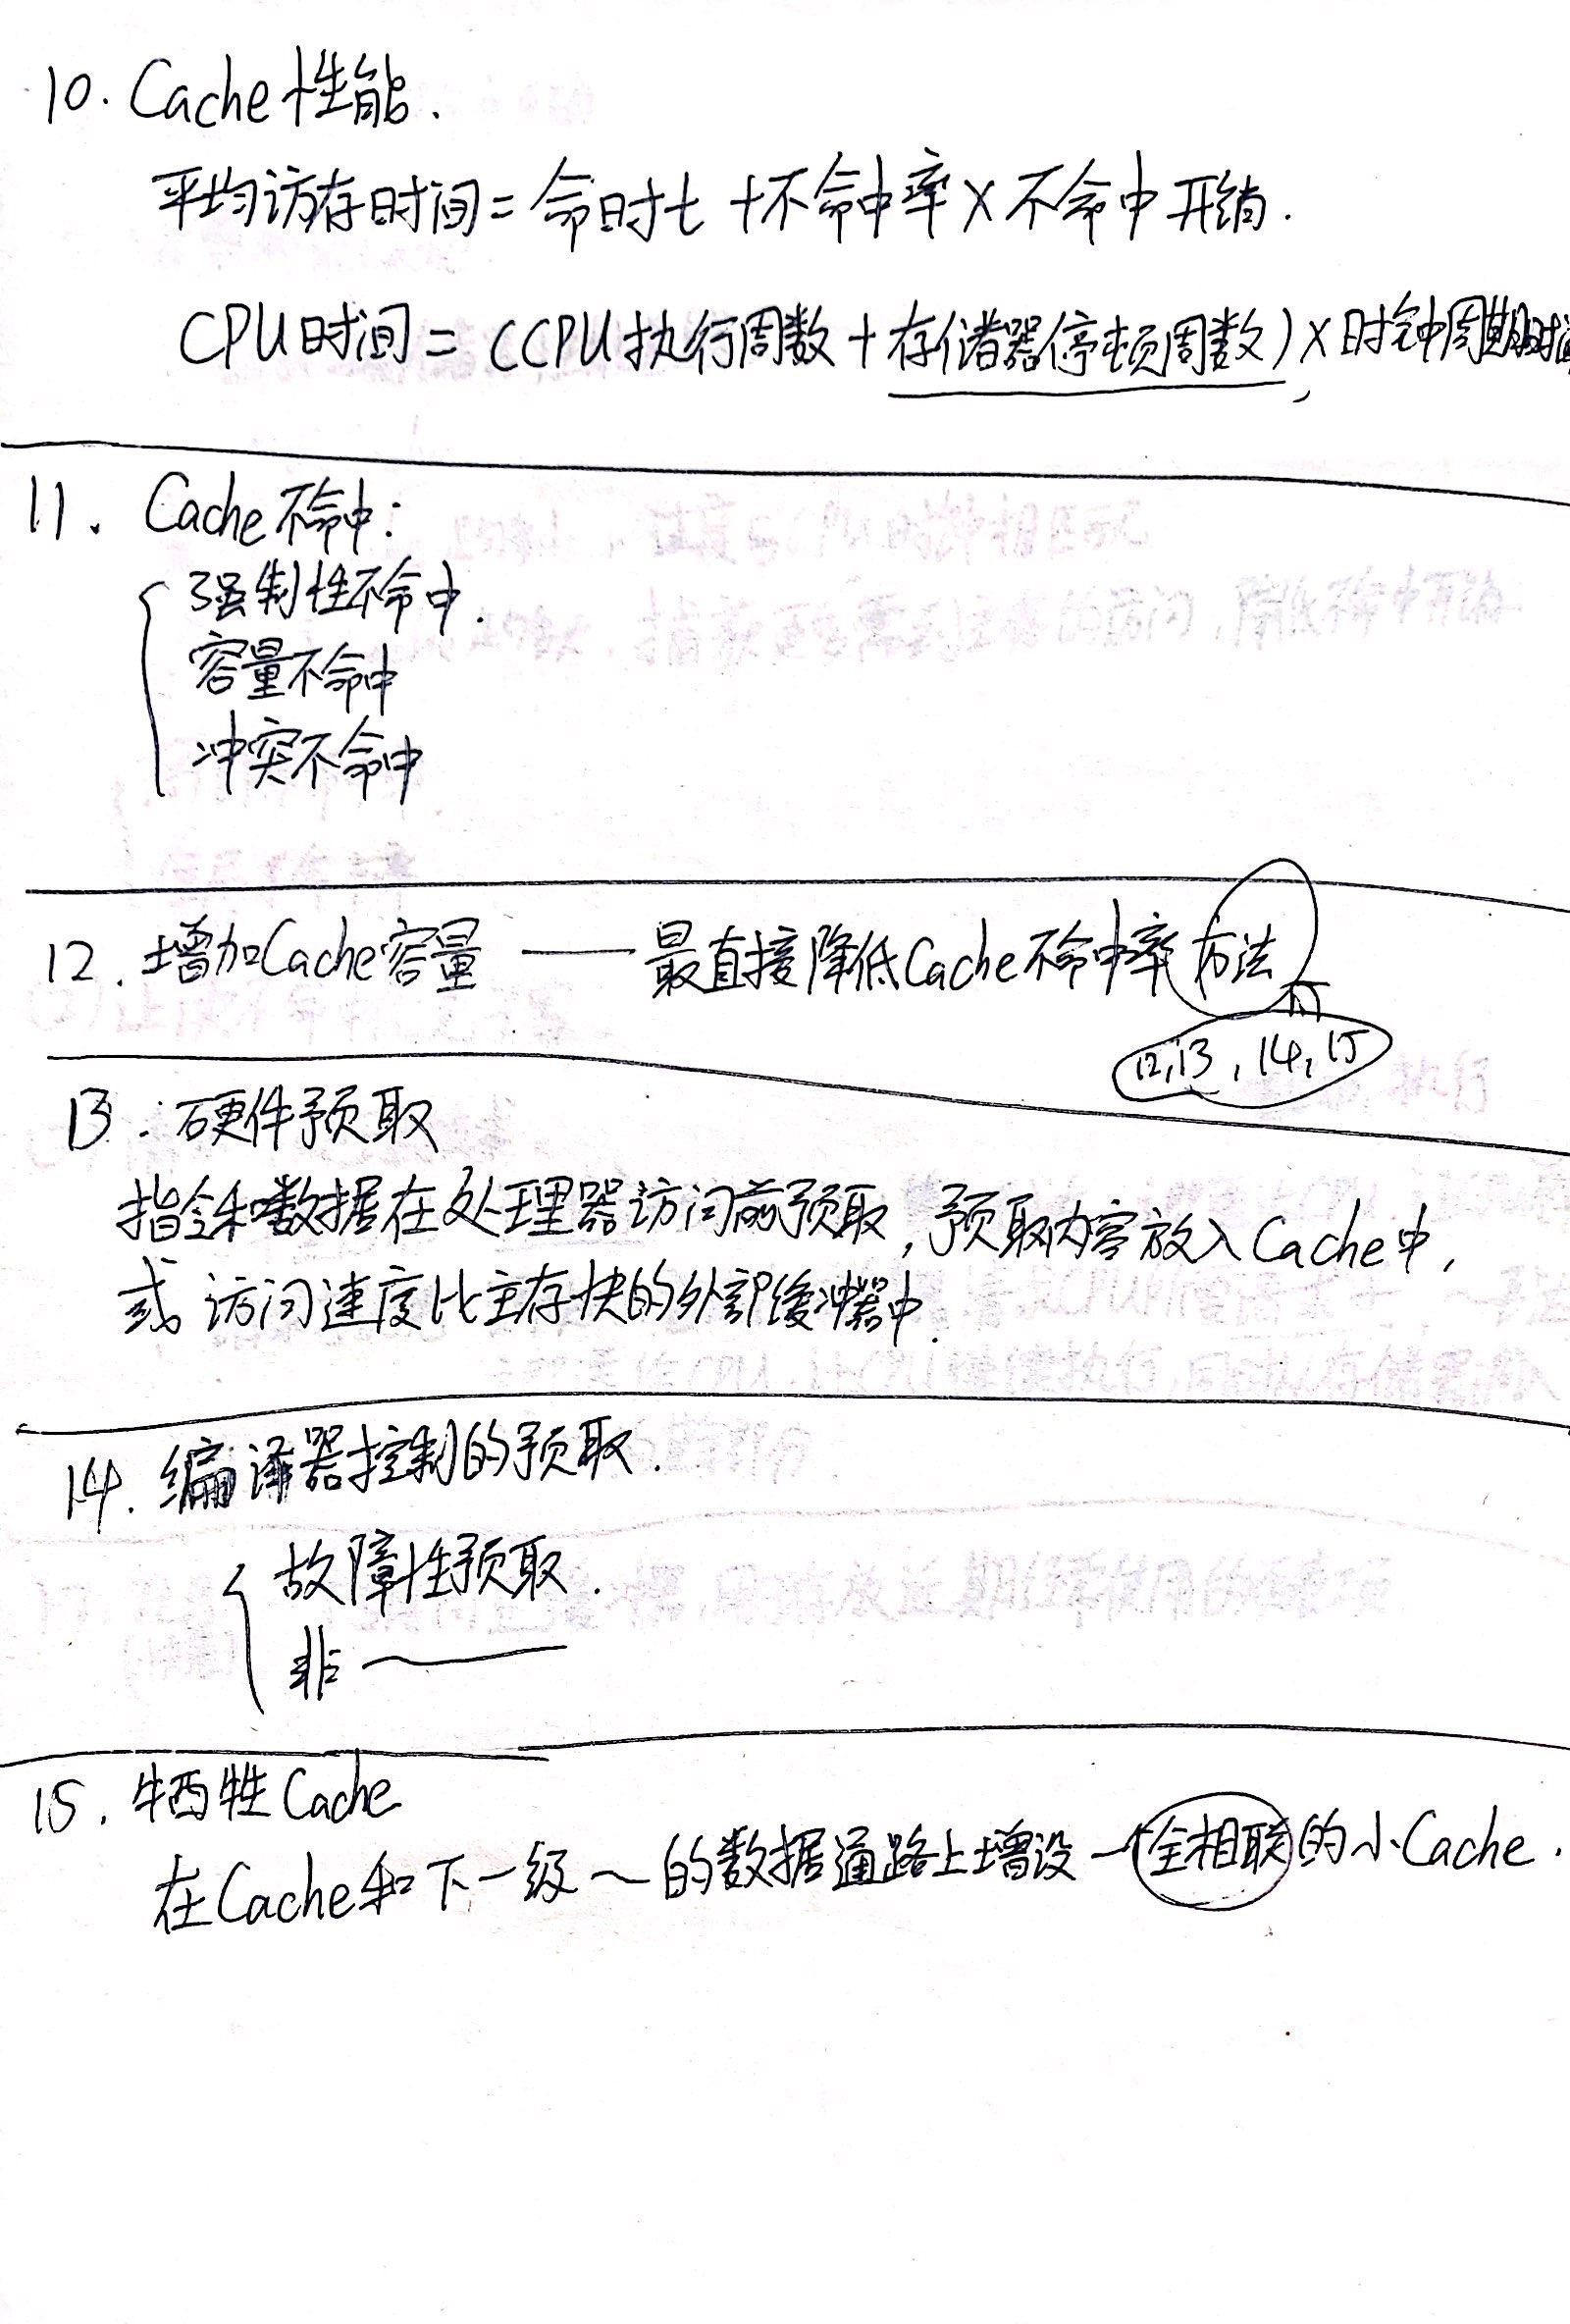 10. Cache性能.
平均访存时间 = 命时t + 不命中率 × 不命中开销.
CPU时间 = (CPU执行周数 + 存储器停顿周数) × 时钟周期时间
11. Cache不命中:
强制性不命中.
容量不命中
冲突不命中
12. 增加Cache容量 —— 最直接降低Cache不命中率方法
12, 13, 14, 15
13. 硬件预取
指令和数据在处理器访问前预取, 预取内容放入Cache中,
或访问速度比主存快的外部缓冲器中.
14. 编译器控制的预取.
故障性预取.
非 ——
15. 牺牲Cache
在Cache和下一级~的数据通路上增设一个全相联的小Cache.